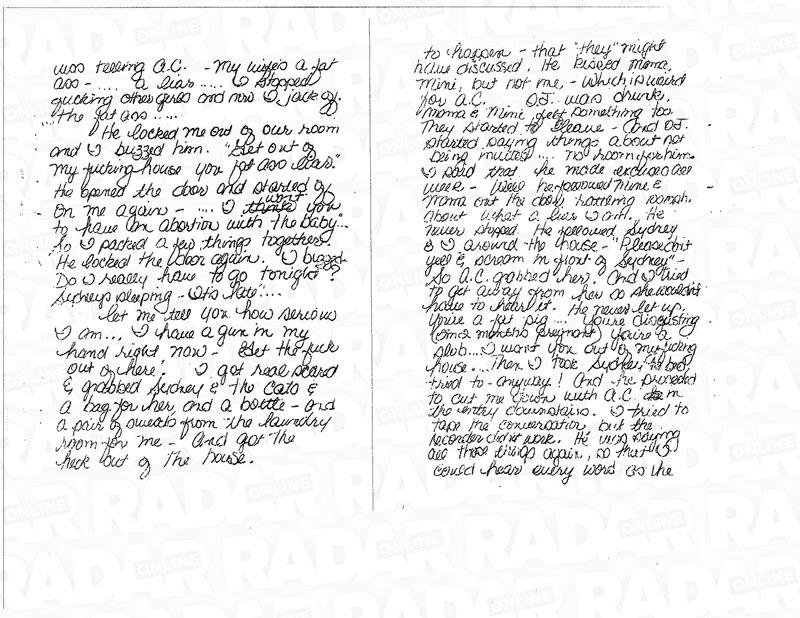 was telling A.C. - my wife's a fat
ass - .... a liar ..... I stopped
fucking other girls and now I jack off
.. The fat ass .....
He locked me out of our room
and I buzzed him. "Get out of
my fucking house you fat ass liar."
He opened the door and started of
on me again - .... I want you
to have an abortion with the baby"...
So I packed a few things together.
He locked the door again. I buzzed
Do I really have to go tonight?
Sydneys sleeping - Its late"....
Let me tell you how serious
I am... I have a gun in my
hand right now - Get the fuck
out of here. I got real scared
& grabbed Sydney & the cats &
a bag for her, and a bottle - and
a pair of sweats from the laundry
room for me - And got the
heck out of the house.
to happen - that "they" might
have discussed. He kissed moma,
mini, but not me, - which is weird
for A.C. O.J. was drunk.
moma & Mini felt something too
They started to leave - and O.J.
started saying things about not
being invited ... no room for him.
I said that he made excuses all
week - Well he followed mini &
moma out the door, rattling
about what a liar I am. He
never stopped. He followed Sydney
& I around the house - "Please don't
yell & scream in front of Sydney" -
So A.C. grabbed her. And I tried
to get away from her so she wouldn't
have to hear it. He never let up.
You're a fat pig ... You're disgusting
(Im 2 months pregnant) you're a
slob... I want you out of my fucking
house.... Then I took Sydney to bed,
tried to - anyway! And he proceeded
to cut me down with A.C. in
the entry downstairs. I tried to
tape the conversation but the
recorder didn't work. He was saying
all those things again, so that I
could hear every word as he
RADAR ONLINE